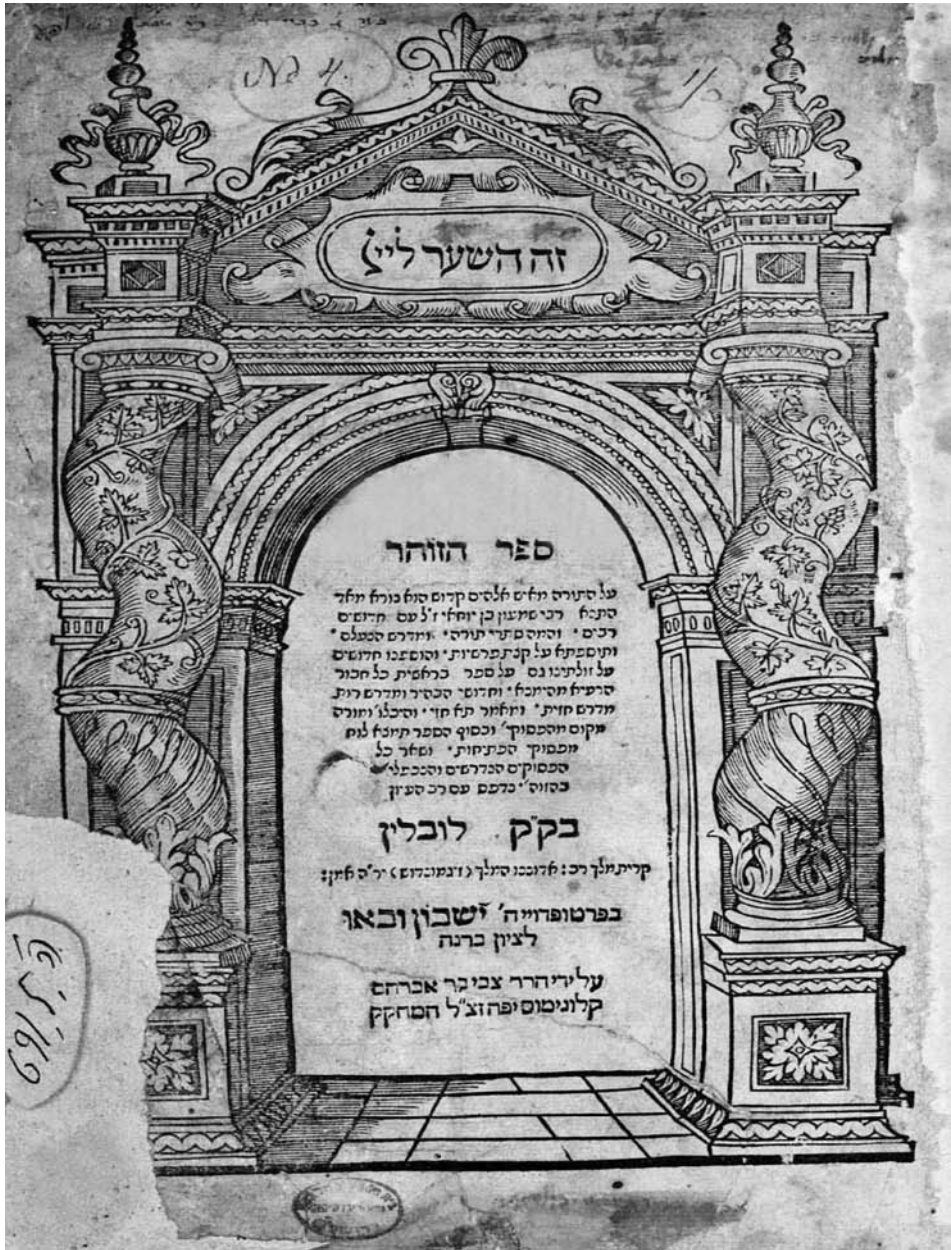 No 4.
זה השער ליי
ספר הזוהר
על התורה מאיש אלהים קדוש הוא נורא מאד
התנא רבי שמעון בן יוחאי ז"ל עם חדושים
רבים • והמה סתרי תורה • ומדרש הנעלם •
ותוספתא על קצת פרשיות • והוספנו חדושים
על זולתינו גם על ספר בראשית כל חבור
הרעיא מהימנא • וחדושי הבהיר ומדרש רות
מדרש חזית • ומאמר תא חזי • והיכלו' ומורה
מקום מהפסוקי' ובסוף הספר תמצא לוח
מפסוקי הפתיחות • ושאר כל
הפסוקים הנדרשים והנכפלי'
בהזוה"ר נדפס עם רב העיון
בק"ק לובלין
קרית מלך רב : אדוננו המלך (זיגמונדוש) יר"ה אמן :
בפרט ופדויי ה' ישבון ובאו
לציון ברנה
על ידי הרר צבי בר אברהם
קלונימוס יפה זצ"ל המחקק